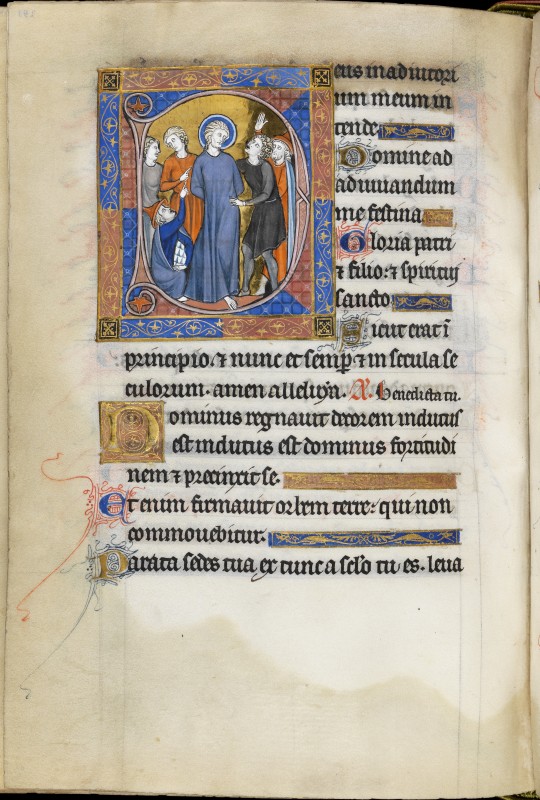 eus in adiutori
um meum in
tende
Domine ad
adiuuandum
me festina
Gloria patri
⁊ filio: ⁊ spiritui
sancto
Sicut erat ī
principio. ⁊ nunc et semp ⁊ in secula se
culorum. amen alleluya. A. Benedicta tu.
Dominus regnauit decorem indutus
est indutus est dominus fortitudi
nem ⁊ precinxit se.
Et enim firmauit orbem terre: qui non
commouebitur.
Parata sedes tua ex tunc a sclo tu es. leua